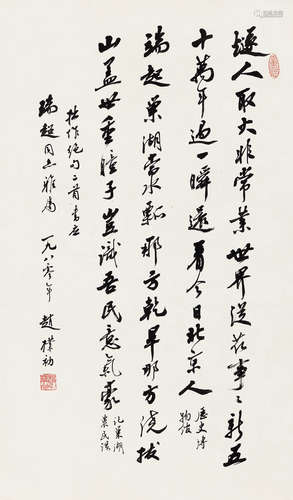 燧人取火非常業世界從茲事々新五
十萬年過一瞬還看今日北京人
歷史博
物館
端起巢湖當水瓢那方乾旱那方澆拔
山蓋世重瞳子豈識吾民意氣豪
記巢湖
農民謠
拙作絕句二首書應
瑞超同志雅屬 一九八〇年 趙樸初